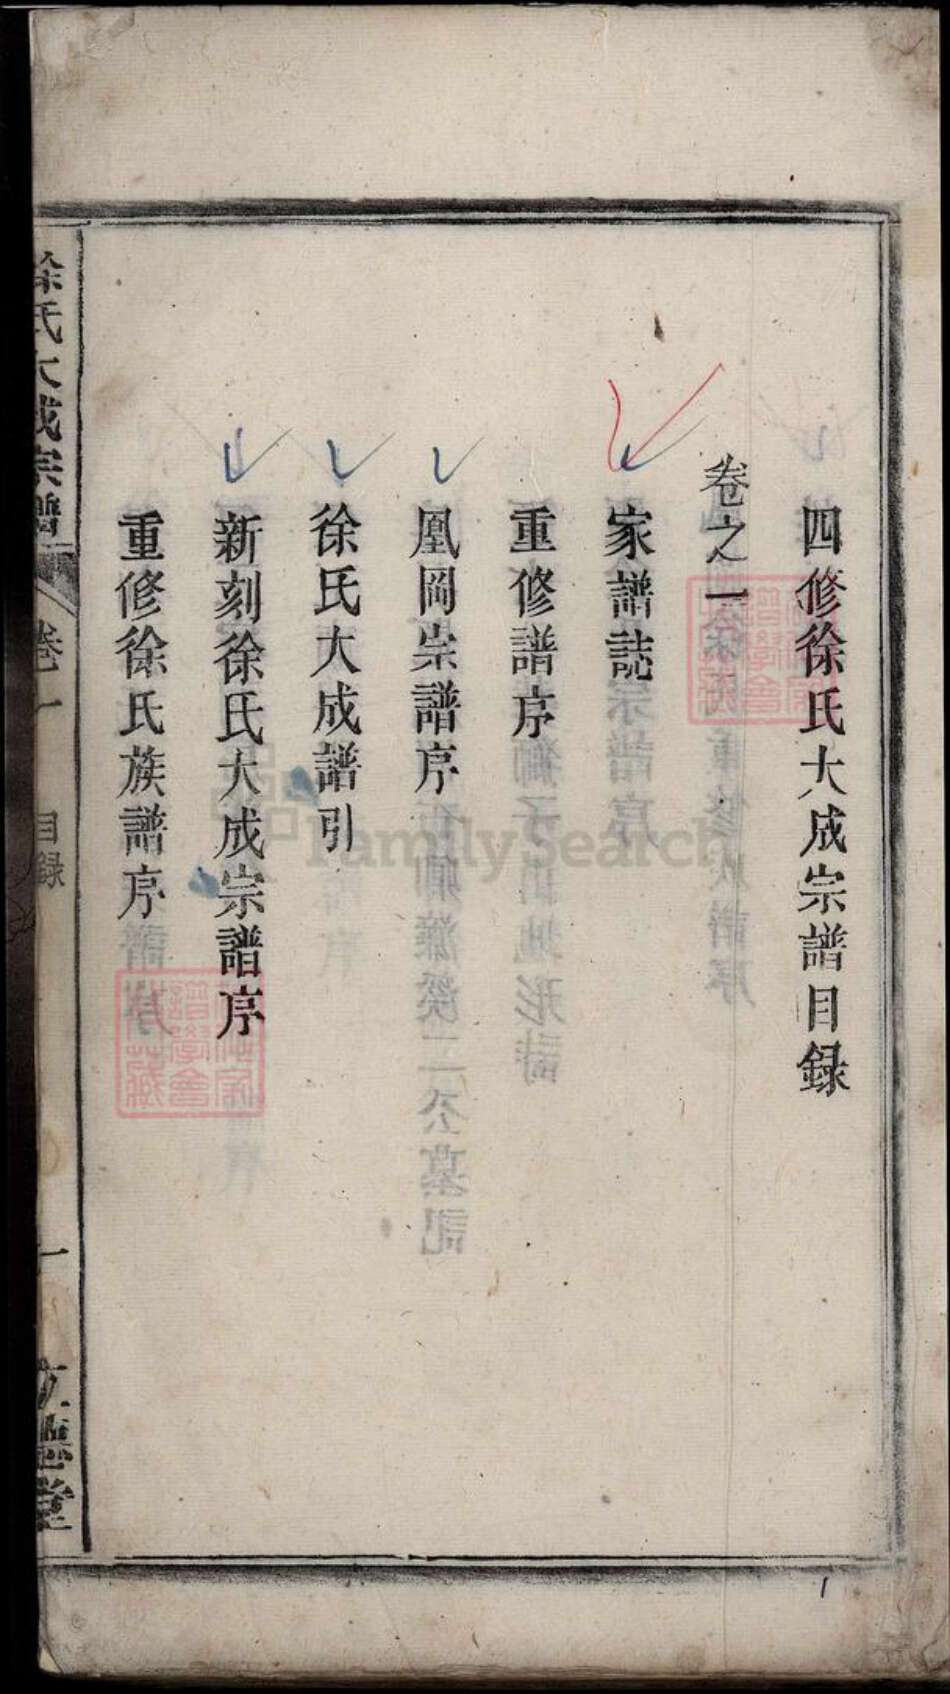 四修徐氏大成宗譜目錄
卷之一
家譜誌
重修譜序
凰岡宗譜序
徐氏大成譜引
新刻徐氏大成宗譜序
重修徐氏族譜序
徐氏大成宗譜
卷一
目錄
一
堂
FamilySearch
1